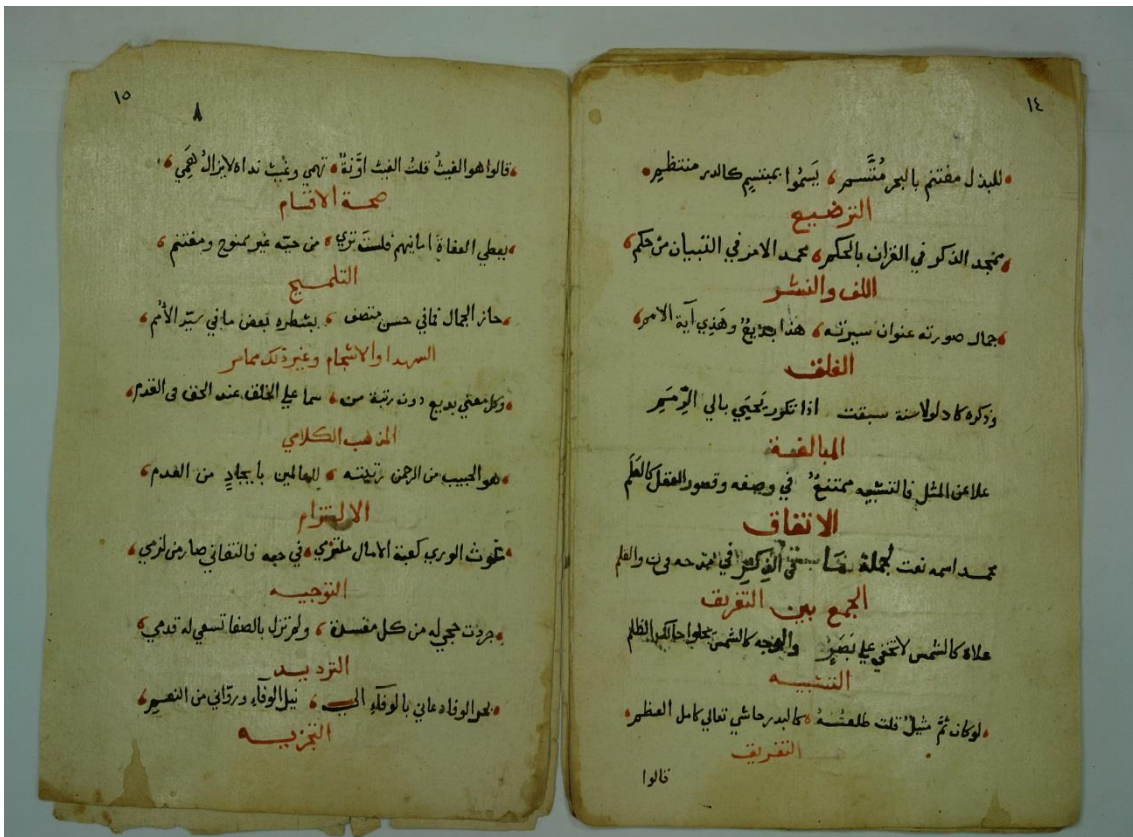 ١٤
للبذل مغتنم بالبحر متسم يسموا بمبتسم كالدر منتظم
الترضيع
ممجد الذكر في الفران بالحكم محمد الامر في التبيان من حكم
اللف والنشر
جمال صورته عنوان سيرته هذا بديعٌ وهذي آية الامم
الغلف
وذكره كاد لولا سنة سبقت اذا تكرر يحيي بالي الرمم
المبالغة
علا عن المثل فالتشبيه ممتنعٌ في وصفه وقصور العقل كالعلم
الاتفاق
محمد اسمه نعت لجملة في مدحه في ن والقلم
الجمع بين التفريق
علاه كالشمس لا تخفي علي بصر والوجه كالشمس يجلوا حالك الظلم
التشبيه
لو كان ثم مثيلٌ قلت طلعته كالبدر حاشي تعالي كامل العظم
التفريق
قالوا
١٥
٨
قالوا هو الغيثُ قلتُ الغيث اوَّنةٌ تهمي وغيث نداه لا يزالُ همي
صحة الاقسام
يعطي العفاة امانيهم فلست تري من حيه غير ممنوح ومغتنم
التلميح
حاز الجمال تماني حسن متصف بشطره بعض ما في سيّد الأمم
السهدا والانسجام وغير ذلك مما مر
وكل معني بديع دون رتبة من سما علي الخلق عند الحق في القدم
المذهب الكلامي
هو الحبيب من الرحمن رتبته للعالمين بايجادٍ من العدم
الالتزام
غوث الوري كعبة الامال ملتزمي في حبه فالتفاني صار من لزمي
التوجيه
جردت حجي له من كل مفسدة ولم تزل بالصفا تسعي له قدمي
الترديد
بحر الوفا دعاني بالوفآء الي نيل الوفآء وروّاني من النعيم
التجزيه